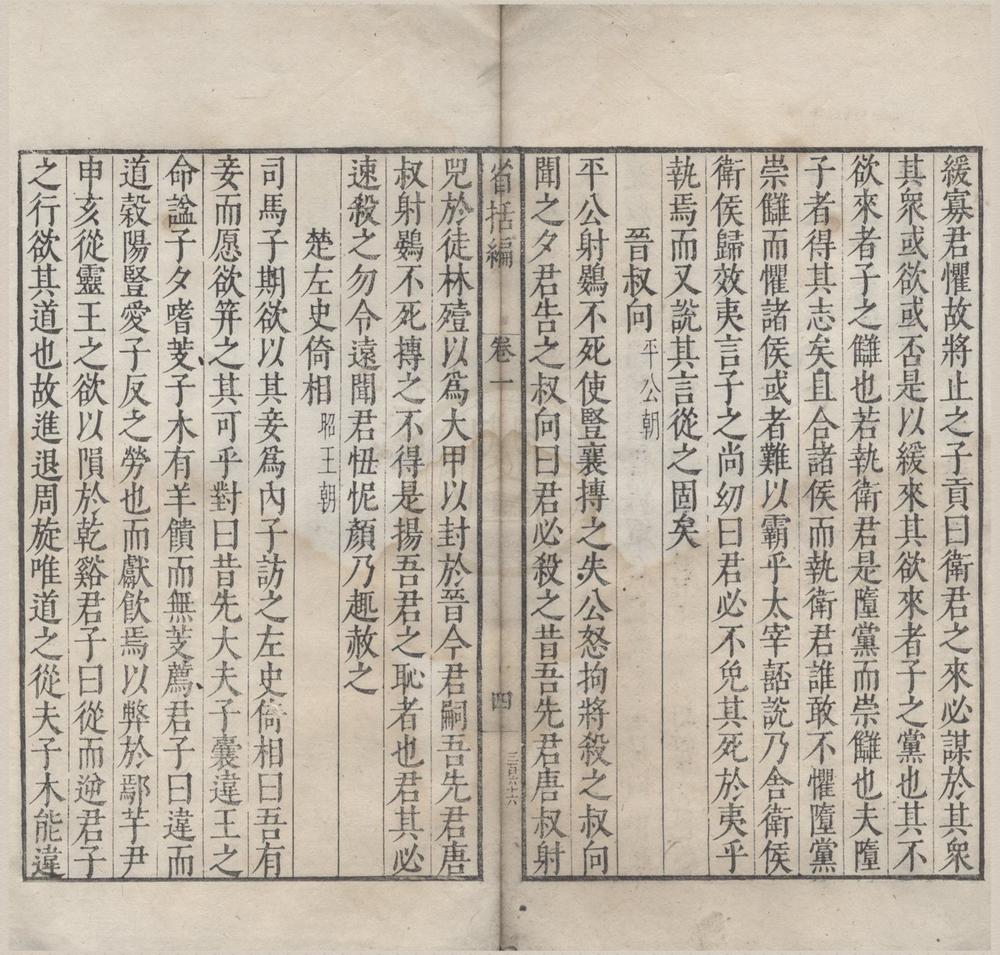 緩寡君懼故將止之子貢曰衛君之來必謀於其衆
其衆或欲或否是以緩來其欲來者子之黨也其不
欲來者子之讎也若執衛君是墮黨而崇讎也夫墮
子者得其志矣且合諸侯而執衛君誰敢不懼墮黨
崇讎而懼諸侯或者難以霸乎太宰嚭說乃舍衛侯
衛侯歸效夷言子之尚幼曰君必不免其死於夷乎
執焉而又說其言從之固矣
晉叔向平公朝
平公射鷃不死使豎襄搏之失公怒拘將殺之叔向
聞之夕君告之叔向曰君必殺之昔吾先君唐叔射
省括編 卷一 四 三百六十六
兕於徒林殪以爲大甲以封於晉今君嗣吾先君唐
叔射鷃不死搏之不得是揚吾君之恥者也君其必
速殺之勿令遠聞君忸怩顏乃趣赦之
楚左史倚相昭王朝
司馬子期欲以其妾爲內子訪之左史倚相曰吾有
妾而愿欲笄之其可乎對曰昔先大夫子囊違王之
命謚子夕嗜芰子木有羊饋而無芰薦君子曰違而
道穀陽豎愛子反之勞也而獻飮焉以弊於鄢芋尹
申亥從靈王之欲以隕於乾谿君子曰從而逆君子
之行欲其道也故進退周旋唯道之從夫子木能違